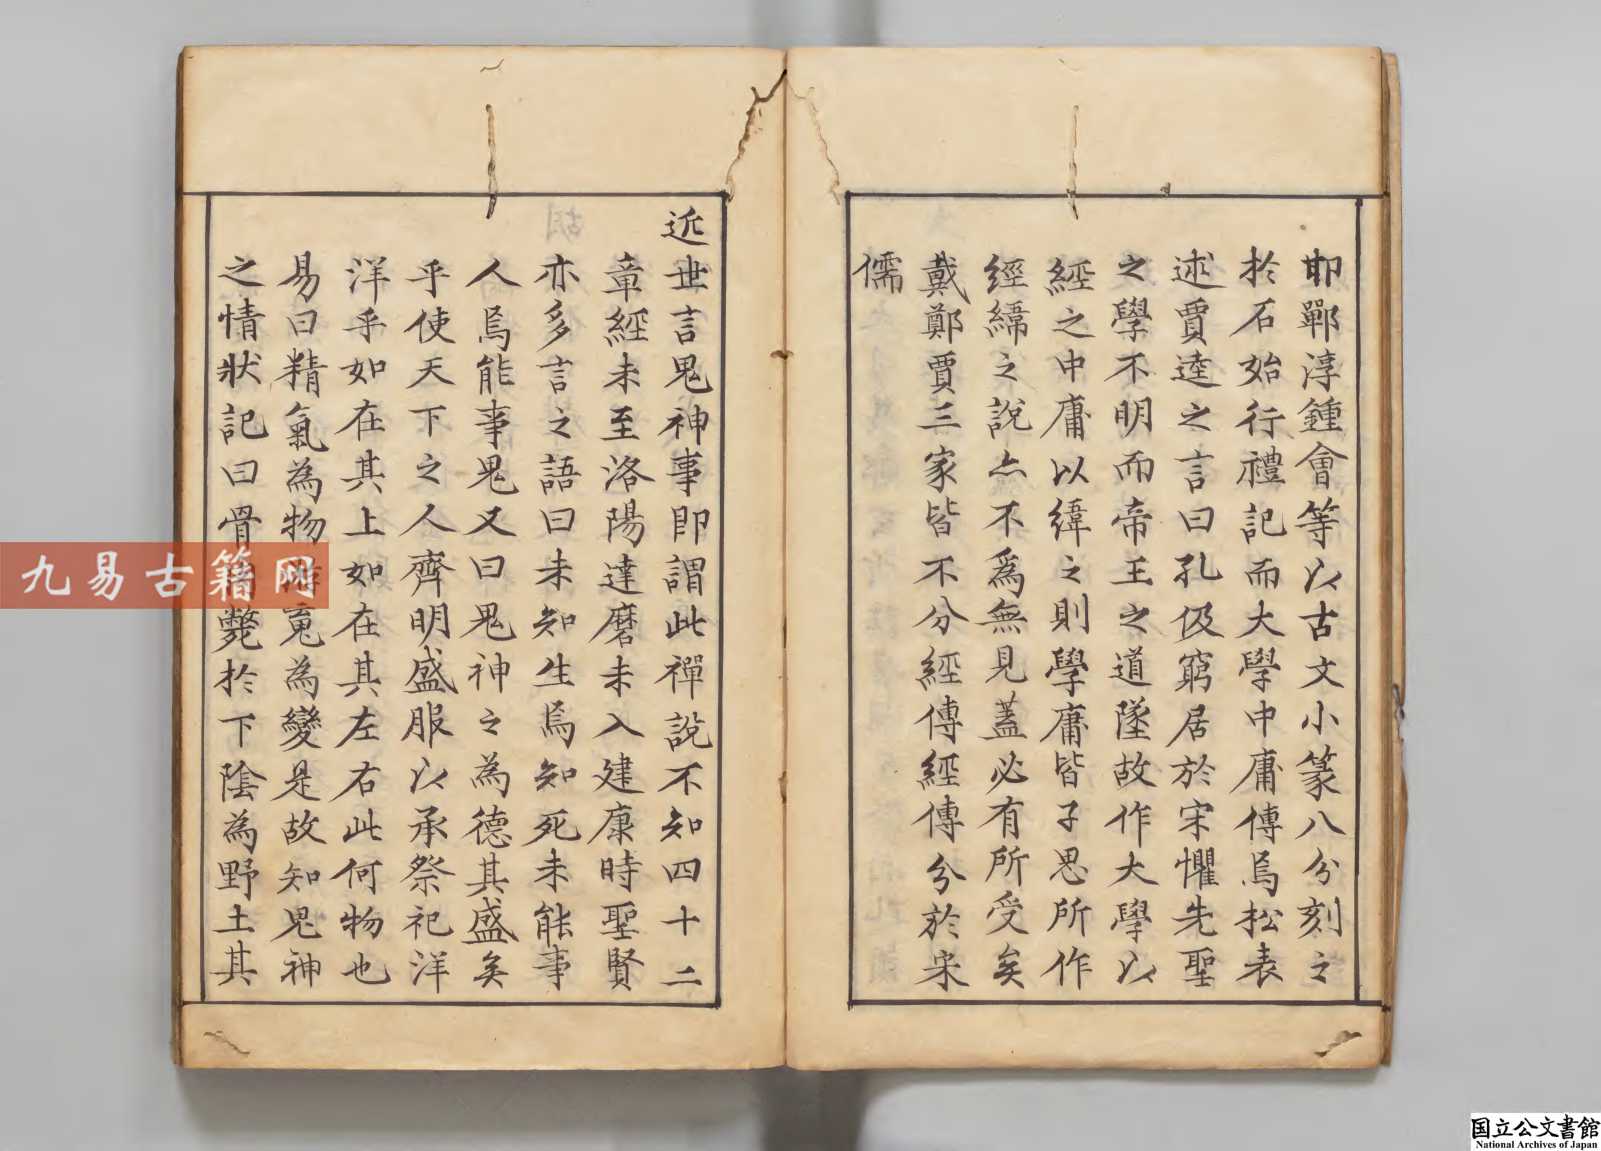 邯鄲淳鍾會等以古文小篆八分刻之
於石始行禮記而大學中庸傳焉松表
述賈逵之言曰孔伋窮居於宋懼先聖
之學不明而帝王之道墜故作大學以
經之中庸以緯之則學庸皆子思所作
經緯之說亦不爲無見蓋必有所受矣
戴鄭賈三家皆不分經傳經傳分於宋
儒
近世言鬼神事即謂此禪說不知四十二
章經未至洛陽達磨未入建康時聖賢
亦多言之語曰未知生焉知死未能事
人焉能事鬼又曰鬼神之為德其盛矣
乎使天下之人齊明盛服以承祭祀洋
洋乎如在其上如在其左右此何物也
易曰精氣為物遊䰟為變是故知鬼神
之情狀記曰骨肉斃於下陰為野土其
九易古籍网
国立公文書館
National Archives of Japan